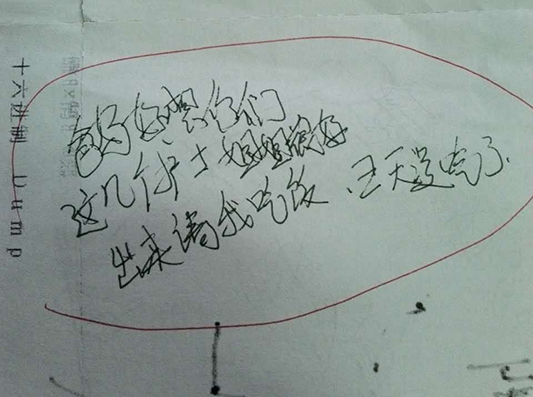 爸妈好想你们
这几个护士姐姐很好
出来请我吃饭、三天没吃了.
十六进制 Dump